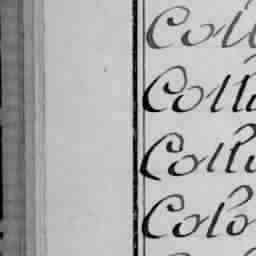 Coll
Colli
Colli
Colo